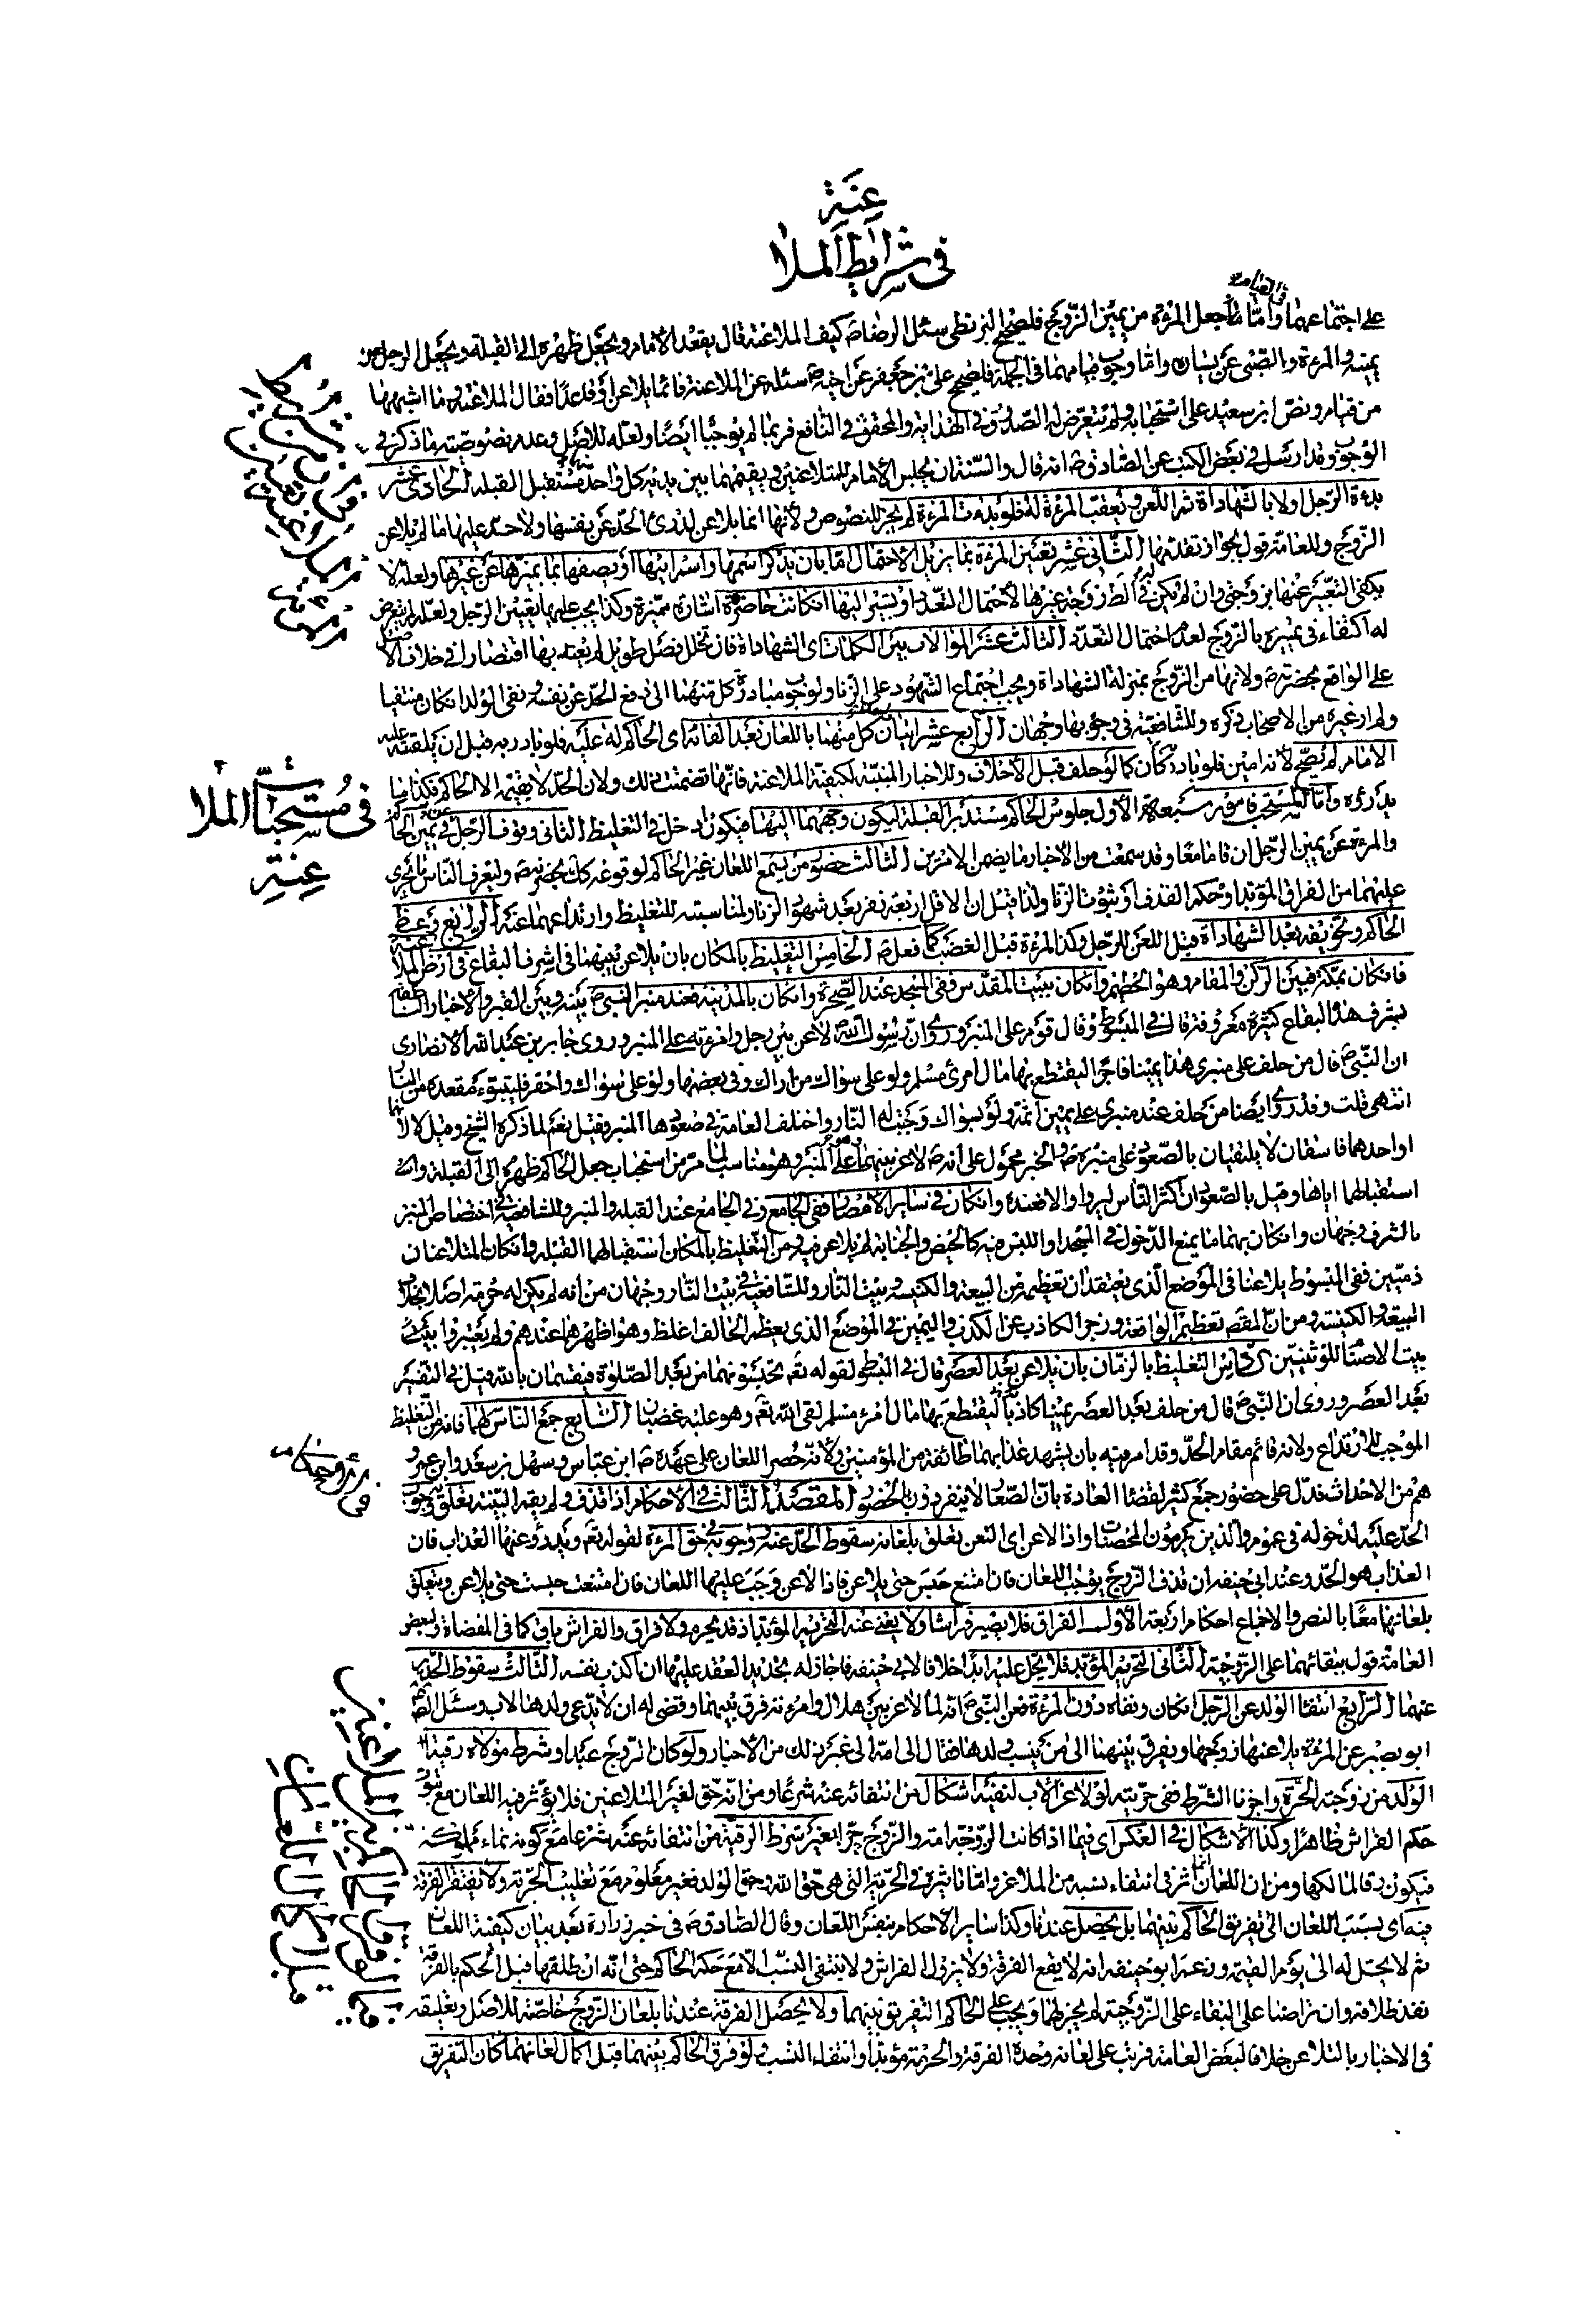 في شرايط الملا
عنة
على اجتماعهما وامّا جعل المرءة من يمين الزّوج فلصحيح البزنطى سئل الرضا ع كيف الملاعنة قال يقعد الامام ويجعل ظهره الى القبلة ويجعل الرجل عن
يمينه والمرءة والصّبى عن يساره وامّا وجوب قيامهما في الجملة فلصحيح علىّ بن جعفر عن اخيه ع سئله عن الملاعنة قائما يلاعن او قاعدًا فقال الملاعنة وما اشبهها
من قيام ونصّ ابن سعيد على استحبابه ولم يتعرّض له الصّدوق في الهداية والمحقق في النّافع فربما لم يوجبا ايضًا ولعلّه للاصل وعدم نصوصيّة ما ذكر في
الوجوب وقد ارسل في بعض الكتب عن الصّادق ع انه قال والسّنة ان يجلس الامام للمتلاعنين ويقيمهما بين يديه كل واحد مستقبل القبلة الحادى عشر
بدءة الرّجل ولا بالشّهادة ثم اللّعن وتعقّب المرءة له فلو بدءت المرءة لم يجز للنصوص ولانها انما يلاعن لدرئ الحدّ عن نفسها ولا حدّ عليها ما لم يلاعن
الزّوج وللعامة قول بجواز تقدّمها الثّانى عشر تعيين المرءة بما يزيل الاحتمال امّا بان يذكر اسمها واسم ابيها او يصفها بما يميّزها عن غيرها ولعلّه لا
يكفى التّعبير عنها بزوجتى وان لم يكن في الظاهر زوجة غيرها لاحتمال التّعدّد او يشير اليها ان كانت حاضرة اشارة مميّزة وكذا يجب عليهما تعيين الرّجل ولعلّه لم يتعرض
له اكتفاء في تمييزه بالزّوج لعدم احتمال التّعدّد الثالث عشر الموالاة بين الكلمات اى الشهادات فان تخلّل فصل طويل لم يعتد بها اقتصارا في خلاف الاصل
على الواقع بحضرته ص ولانها من الزّوج بمنزلة الشهادات ويجب اجتماع الشّهود على الزّنا ولوجوب مبادرة كل منهما الى دفع الحدّ عن نفسه ونفى الولد ان كان منتفيا
ولم ار غيره من الاصحاب ذكره وللشّافعيّة في وجوبها وجهان الرّابع عشر اتيان كل منهما باللعان بعد القائه اى الحاكم له عليه فلو بادر به قبل ان يلقيه عليه
الامام لم يصحّ لانه امين فلو بادر كان كما لو حلف قبل الاحلاف وللاخبار المبيّنة لكيفيّة الملاعنة فانّها تضمنت ذلك ولان الحدّ لا يقيمه الا الحاكم فكذا ما
يدرؤه وامّا المستحب فامور سبعة الاول جلوس الحاكم مستدبر القبلة ليكون وجههما اليها فيكون ادخل في التغليظ الثانى وقوف الرّجل عن يمين الحاكم
والمرءة عن يمين الرّجل ان قاما معًا وقد سمعت من الاخبار ما يضمن الامرين الثالث حضور من يسمع اللعان غير الحاكم لوقوعه كك بحضرته ص وليعرف النّاس ما يجرى
عليهما من الفراق المؤبّد او حكم القذف او ثبوت الزّنا ولذا قيل ان الاقلّ اربعة نفر بعد شهود الزنا ولمناسبته للتغليظ وارتداعهما عنه الرابع وعظ
الحاكم وتخويفه بعد الشهادات قبل اللعن للرّجل وكذا المرءة قبل الغضب كما فعل ص الخامس التغليظ بالمكان بان يلاعن بينهما في اشرف البقاع في ارض الملاعنة
فان كان بمكة فبين الرّكن والمقام وهو الحطيم وان كان ببيت المقدّس ففى المسجد عند الصّخرة وان كان بالمدينة فعند منبر النّبى ص بينه وبين القبر والاخبار النّاطقة
بشرف هذه البقاع كثيرة معروفة قال في المبسوط وقال قوم على المنبر وروى انّ رسول اللّه ص لاعن بين رجل وامرءته على المنبر وروى جابر بن عبد اللّه الانصارى
ان النّبى ص قال من حلف على منبرى هذا يمينا فاجرًا ليقتطع بها مال امرئ مسلم ولو على سواك من اراك وفي بعضها ولو على سواك واحقر فليتبوّء مقعده من النار
انتهى قلت وقد روى ايضا من حلف عند منبرى على يمين اثمة ولو بسواك وجبت له النّار واختلف العامة في صعودها المنبر وقيل نعم لما ذكره الشّيخ وقيل لا لانّهما
او احدهما فاسقان لا يليقان بالصّعود على منبره ص والخبر محمول على انه ص لاعن بينهما وهو على المنبر وهو مناسب لما مرّ من استحباب جعل الحاكم ظهره الى القبلة و
استقبالهما اياها وقيل بالصّعود ان كثر النّاس ليروا والا فعنده وان كان في ساير الامصار ففى الجامع وفي الجامع عند القبلة والمنبر وللشافعيّة في اختصاص المنبر
بالشرف وجهان وان كان بهما ما يمنع الدّخول في المسجد او اللبث فيه كالحيض والجنابة لم يلاعن فيه ومن التّغليظ بالمكان استقبالهما القبلة وان كان المتلاعنان
ذميّين ففى المبسوط يلاعنا في الموضع الّذى يعتقدان تعظيمه من البيعة والكنيسة وبيت النّار وللشّافعيّة في بيت النّار وجهان من انه لم يكن له حرمة اصلا بخلاف
البيعة والكنيسة ومن انّ المقصد تعظيم الواقعة وزجر الكاذب عن الكذب واليمين في الموضع الذى يعظمه الحالف اغلظ وهو اظهرهما عندهم ولم يعتبروا
بيت الاصنام للوثنيّين السّادس التغليظ بالزّمان بان يلاعن بعد العصر قال في المبسوط لقوله تعم تحبسونهما من بعد الصّلوة فيقسمان باللّه قيل في التفسير
بعد العصر وروى ان النّبى ص قال من حلف بعد العصر يمينا كاذبًا ليقتطع بها مال امرء مسلم لقى اللّه تعم وهو عليه غضبان السّابع جمع النّاس لهما فانه من التّغليظ
الموجب للارتداع ولانه قائم مقام الحدّ وقد امر فيه بان يشهد عذابهما طائفة من المؤمنين ولانه حضر اللعان على عهده ص ابن عبّاس وسهل بن سعد وابن عمر و
هم من الاحداث فدلّ على حضور جمع كثير لقضاء العادة بانّ الصّغار لا ينفردون بالحضور المقصد الثّالث في الاحكام اذا قذف ولم يقم البيّنة تعلق به وجوب
الحدّ عليه لدخوله في عموم والّذين يرمون المحصنات واذا لاعن اى التعن تعلق بلعانه سقوط الحدّ عنه ووجوبه في حق المرءة لقوله تعم ويدرؤ عنها العذاب فان
العذاب هو الحدّ وعند ابى حنيفه ان قذف الزّوج يوجب اللعان فان امتنع حبس حتى يلاعن فاذا لاعن وجب عليها اللعان فان امتنعت حبست حتى يلاعن ويتعلق
بلعانهما معًا بالنص والاجماع احكام اربعة الاول الفراق فلا يصير فراشا ولا يغنى عنه التحريم المؤبّد اذ قد يحرم ولا فراق والفراش باق كما في المفضاة ولبعض
العامة قول ببقائهما على الزّوجيّة الثّانى التحريم المؤبّد فلا يحلّ عليه ابدًا خلافا لابى حنيفه فاجاز له تجديد العقد عليها ان اكذب نفسه الثّالث سقوط الحدّين
عنهما الرّابع انتفاء الولد عن الرّجل ان كان ونفاه دون المرءة فعن النّبى ص انه لما لاعن بين هلال وامرءته فرق بينهما وقضى له ان لا يدعى ولدها لاب وسئل الصّادق ع
ابو بصير عن المرءة يلاعنها زوجها ويفرق بينهما الى من ينسب ولدها فقال الى امّه الى غير ذلك من الاخبار ولو كان الزّوج عبدا وشرط مولاه رقية
الولد من زوجته الحرّة واجزنا الشرط ففى حرّيته لو لاعن الاب لنفيه اشكال من انتفائه عنه شرعا ومن انّه حق لغير المتلاعنين فلا يؤثر فيه اللعان مع ثبوت
حكم الفراش ظاهرًا وكذا الاشكال في العكس اى فيما اذا كانت الزّوجة امة والزّوج حرّا بغير شرط الرقية من انتفائه عنه شرعا مع كونه نماء مملوكته
فيكون رقا لمالكها ومن ان اللعان انّما اثر في انتفاء نسبه من الملاعن وامّا تاثيره في الحرّية التى هى حق اللّه وحق الولد فغير معلوم مع تغليب الحرّية ولا يفتقر الفرقة
فيه اى بسبب اللعان الى تفريق الحاكم بينهما بل يحصل عندنا وكذا ساير الاحكام بنفس اللعان وقال الصّادق ع في خبر زرارة بعد بيان كيفية اللعان
ثم لا يحلّ له الى يوم القيمة وزعم ابو حنيفه انه لا يقع الفرقة ولا يزول الفراش ولا ينتفى النّسب الا مع حكم الحاكم حتى انّه ان طلقها قبل الحكم بالفرقة
نفذ طلاقه وان تراضيا على البقاء على الزّوجيّة لم يجز لهما ويجب على الحاكم التفريق بينهما ولا يحصل الفرقة عندنا بلعان الزّوج خاصّة للاصل وتعليقه
في الاخبار بالتلاعن خلافا لبعض العامة فرتب على لعانه وحده الفرقة والحرمة مؤبّدًا وانتفاء النسب ولو فرق الحاكم بينهما قبل اكمال لعانهما كان التفريق
في مستحبّات الملا
عنة